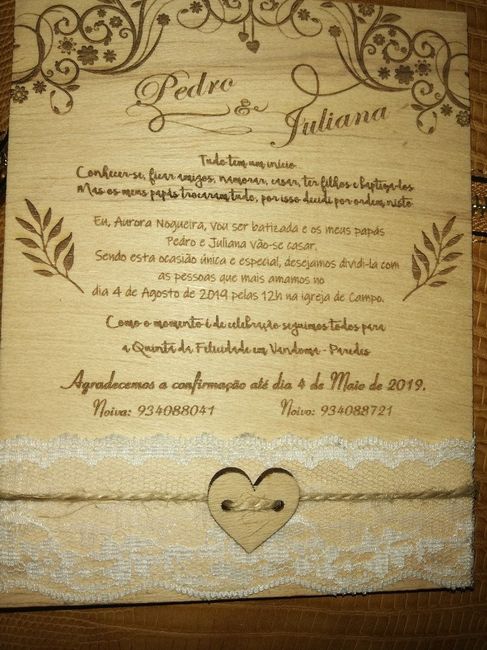 Pedro
&
Juliana
Tudo tem um início...
Conhecer-se, ficar amigos, namorar, casar, ter filhos e baptiza-los
Mas os meus papás trocaram tudo, por isso decidi por ordem nisto
Eu, Aurora Nogueira, vou ser batizada e os meus papás
Pedro e Juliana vão-se casar.
Sendo esta ocasião única e especial, desejamos dividi-la com
as pessoas que mais amamos no
dia 4 de Agosto de 2019 pelas 12h na igreja de Campo.
Como o momento é de celebração seguimos todos para
a Quinta da Felicidade em Vandoma - Paredes
Agradecemos a confirmação até dia 4 de Maio de 2019.
Noiva: 934088041 Noivo: 934088721